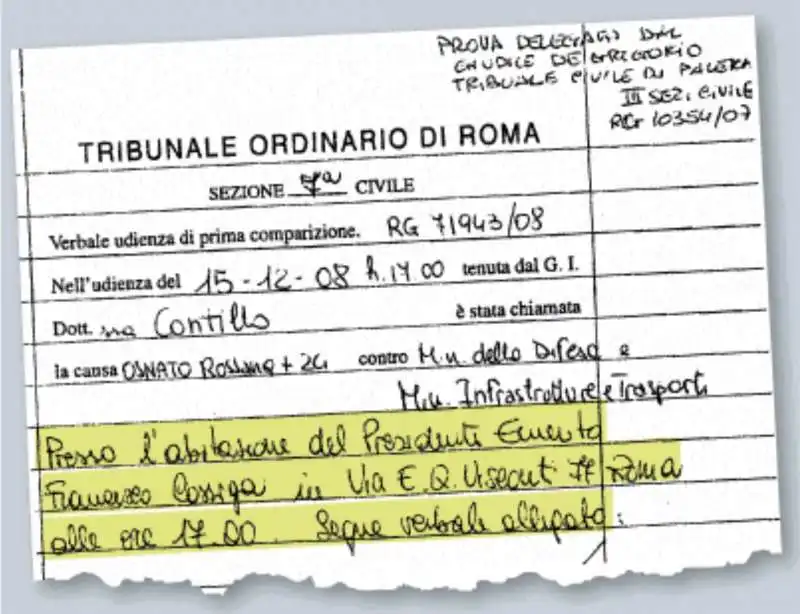 PROVA DELEGATA DAL
GIUDICE DE GREGORIO
TRIBUNALE CIVILE DI PALERMO
III SEZ. CIVILE
RG 10354/07
TRIBUNALE ORDINARIO DI ROMA
SEZIONE 7a CIVILE
Verbale udienza di prima comparizione. RG 71943/08
Nell'udienza del 15-12-08 h.17.00 tenuta dal G. I.
Dott. ssa Contillo è stata chiamata
la causa OSNATO Rossana + 24 contro Min. della Difesa e
Min. Infrastrutture e Trasporti
Presso l'abitazione del Presidente Emerito
Francesco Cossiga in Via E. Q. Visconti 77 Roma
alle ore 17.00. Segue verbale allegato: